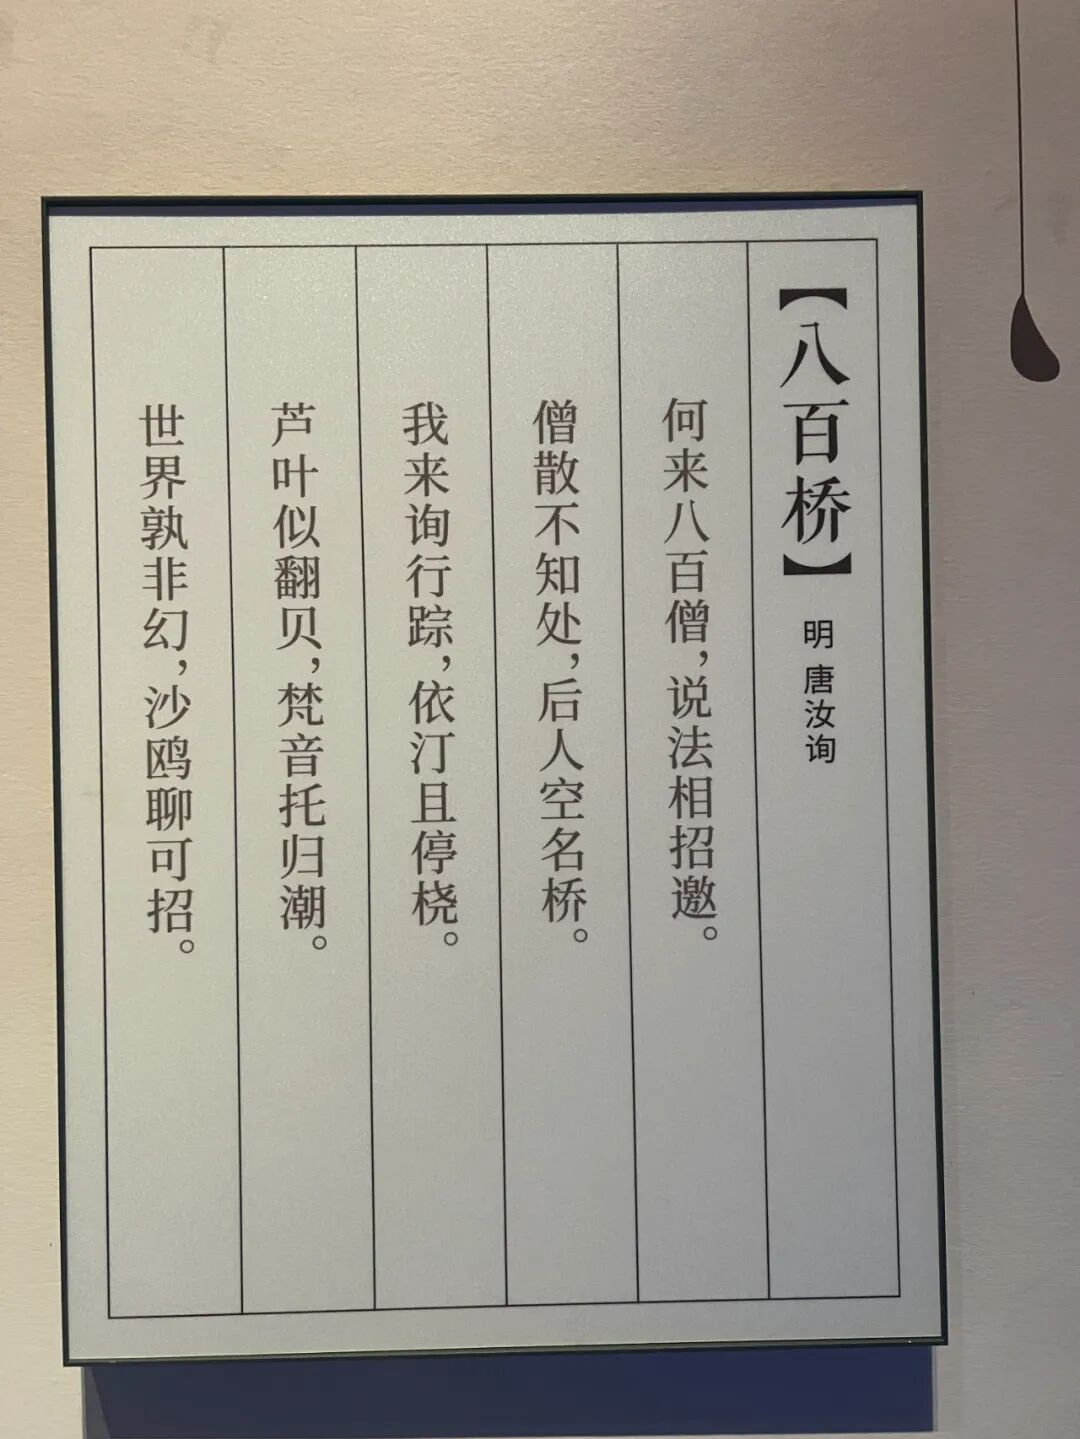 【八百桥】 明 唐汝询
何来八百僧，说法相招邀。
僧散不知处，后人空名桥。
我来询行踪，依汀且停桡。
芦叶似翻贝，梵音托归潮。
世界孰非幻，沙鸥聊可招。